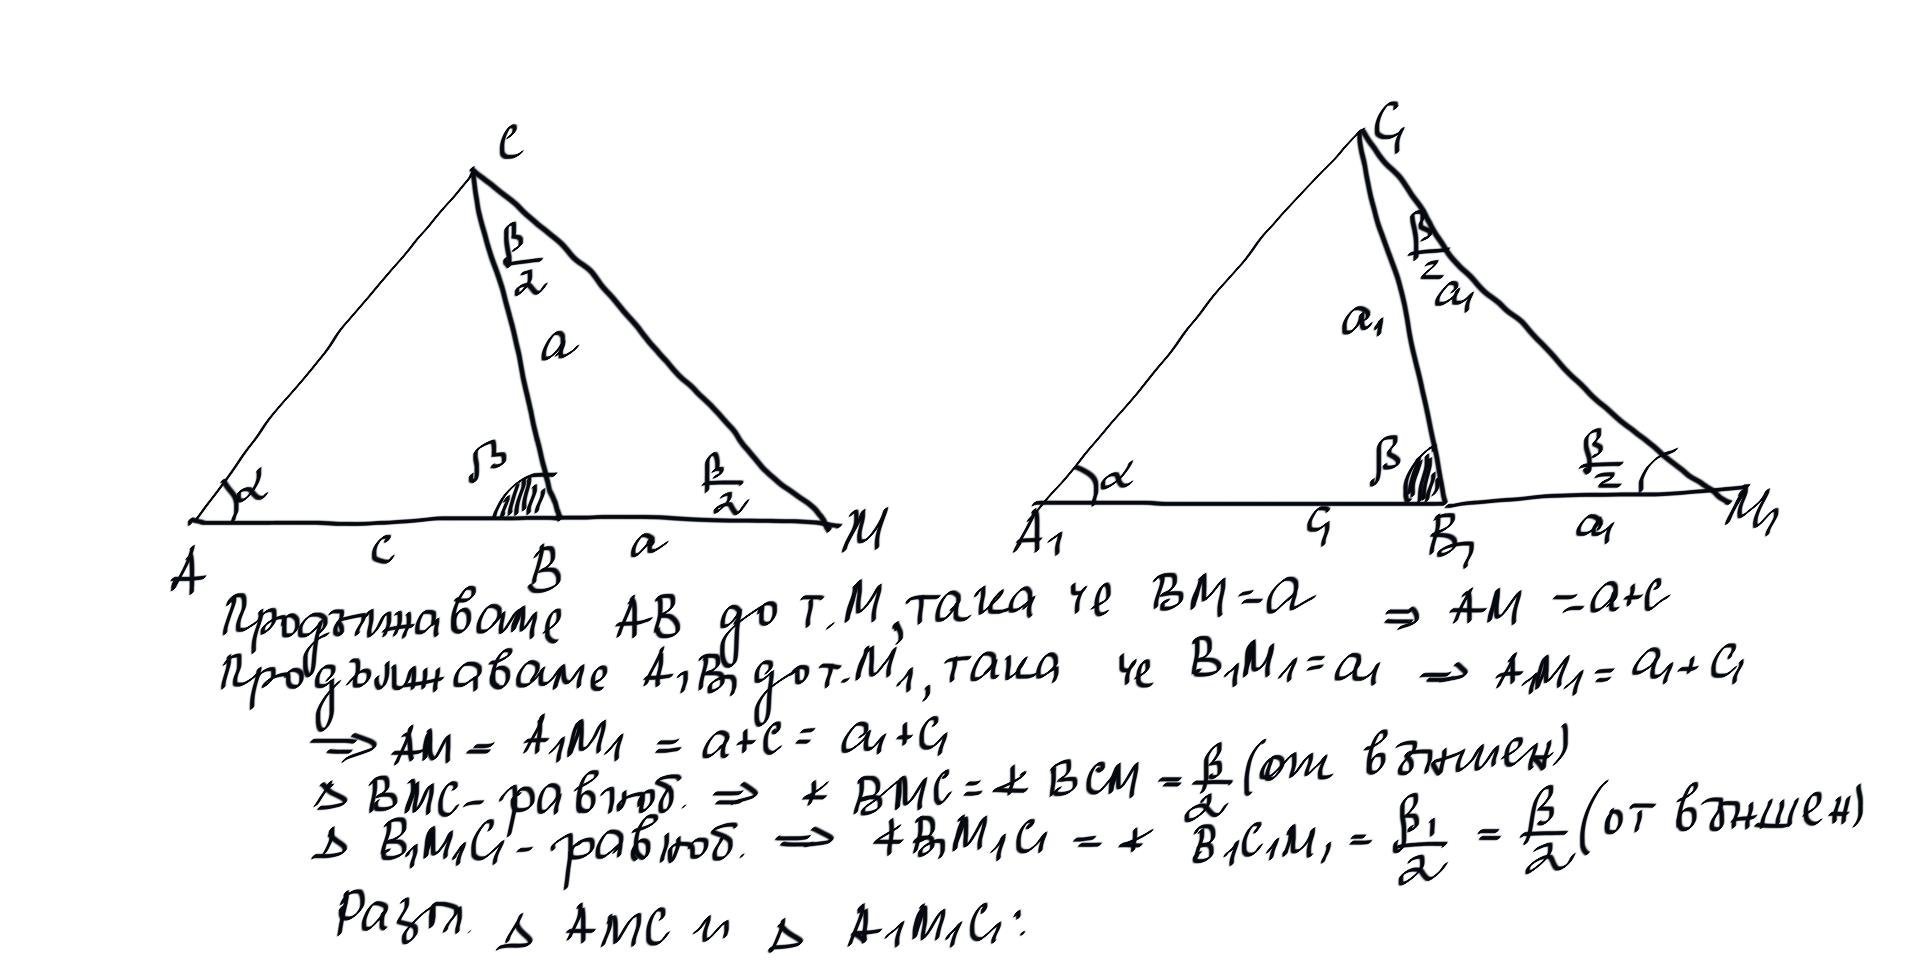 C
C₁
β/2
β/2
a₁
a
a₁
α
β
β/2
α
β
β/2
A
c
B
a
M
A₁
c₁
B₁
a₁
M₁
Продължаваме AB до т. M, така че BM = a ⇒ AM = a+c
Продължаваме A₁B₁ до т. M₁, така че B₁M₁ = a₁ ⇒ A₁M₁ = a₁+c₁
⇒ AM = A₁M₁ = a+c = a₁+c₁
△ BMC - равноб. ⇒ ∢ BMC = ∢ BCM = β/2 (от външен)
△ B₁M₁C₁ - равноб. ⇒ ∢ B₁M₁C₁ = ∢ B₁C₁M₁ = β₁/2 = β/2 (от външен)
Разгл. △ AMC и △ A₁M₁C₁: